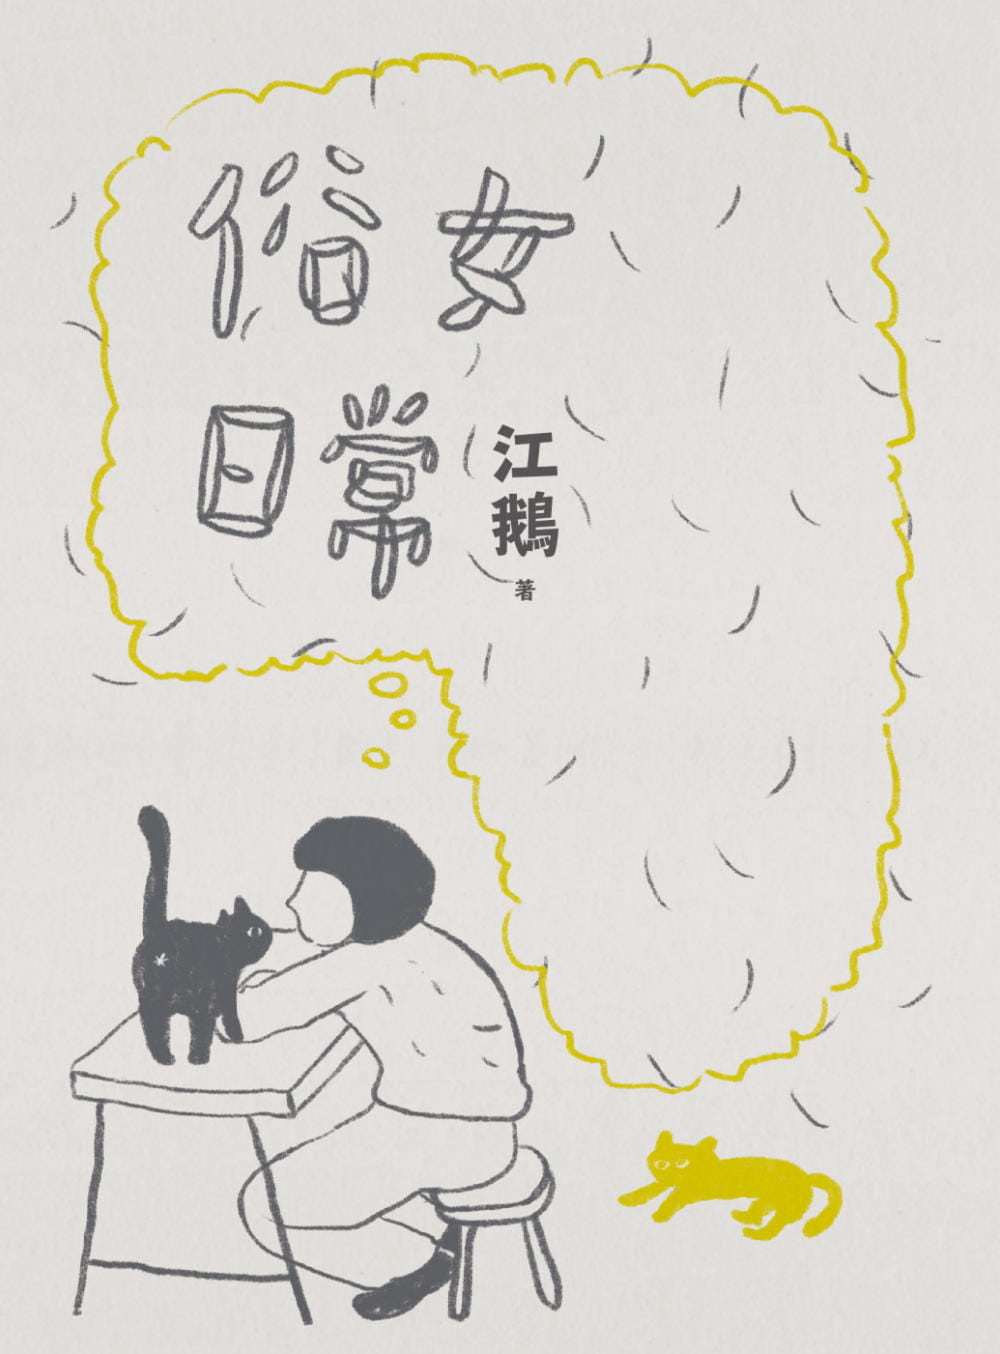 俗女
日常
江鵝
著